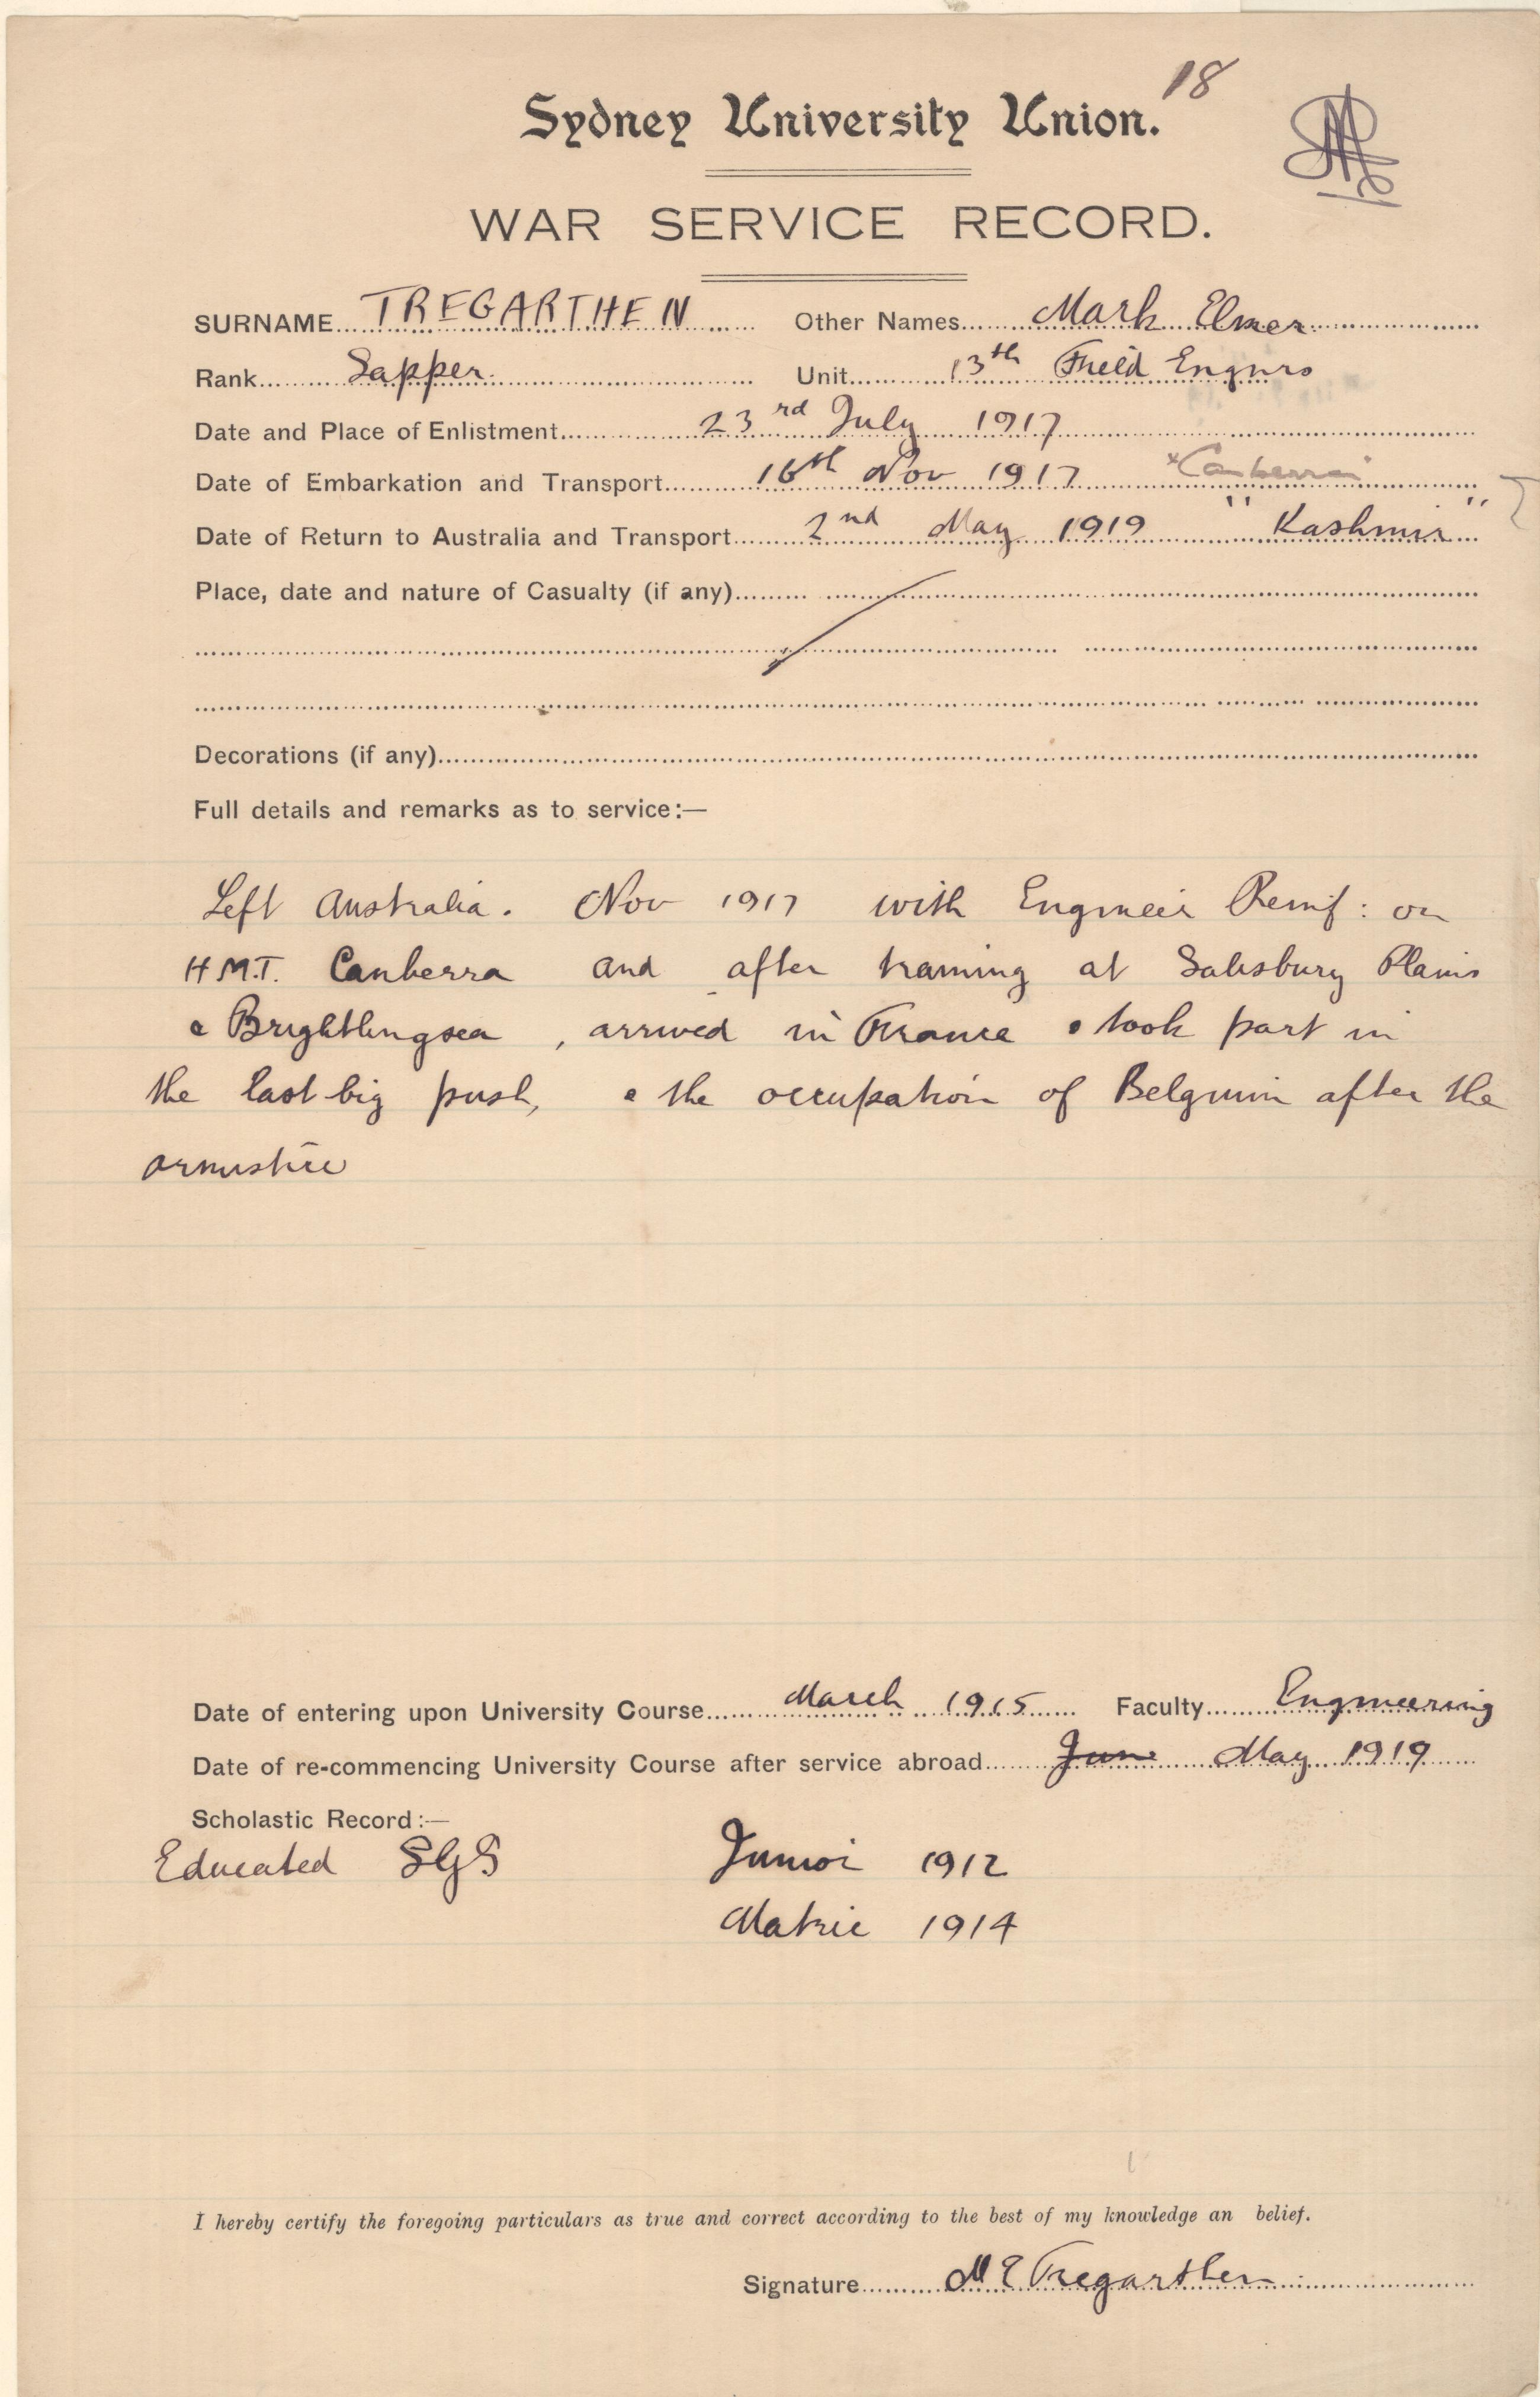 18
Sydney University Union.
WAR SERVICE RECORD.
SURNAME TREGARTHEN Other Names Mark Elmer
Rank Sapper. Unit 13th Field Enginrs
Date and Place of Enlistment 23rd July 1917
Date of Embarkation and Transport 16th Nov 1917 "Canberra"
Date of Return to Australia and Transport 2nd May 1919 "Kashmir"
Place, date and nature of Casualty (if any)
Decorations (if any)
Full details and remarks as to service:—
Left Australia. Nov 1917 with Engineer Reinf: on
H.M.T. Canberra and after training at Salisbury Plains
& Brightlingsea, arrived in France & took part in
the last big push, & the occupation of Belgium after the
armistice
Date of entering upon University Course March 1915 Faculty Engineering
Date of re-commencing University Course after service abroad June May 1919
Scholastic Record:—
Educated SGS Junior 1912
Matric 1914
I hereby certify the foregoing particulars as true and correct according to the best of my knowledge an belief.
Signature M E Tregarthen